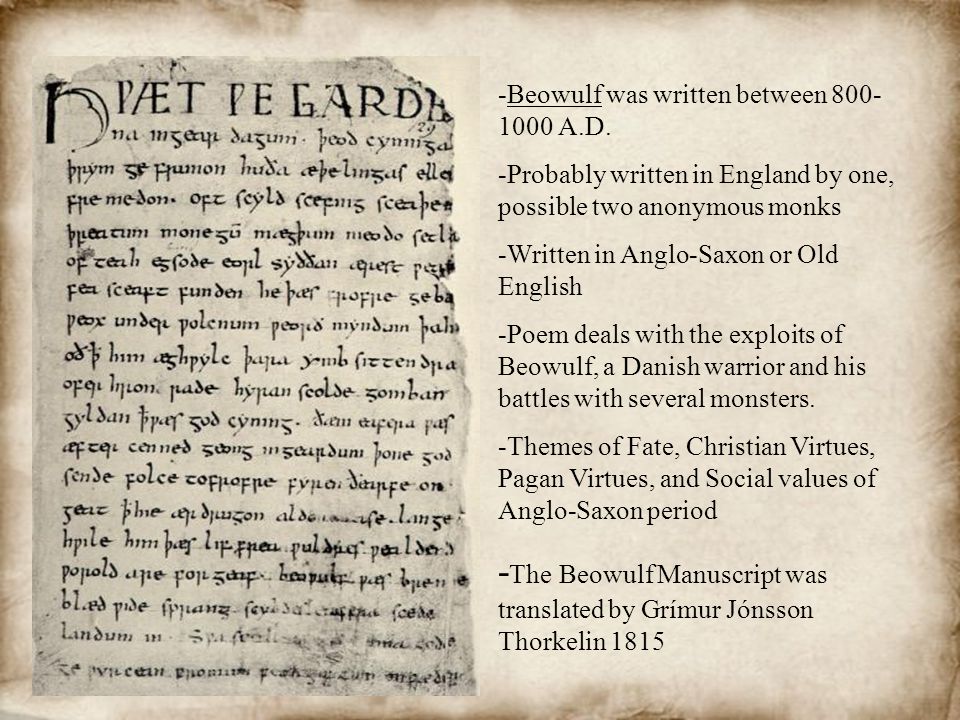 HǷÆT ǷE GARDE
na ingear dagum. þeod cyninga
þrym ge frunon huða æþelingas elle
fre medon. oft scyld scefing sceaþe
þreatum monegū mægþum meodo setla
of teah egsode eorl syððan ærest ƿear
fea sceaft funden he þæs frofre geba
ƿeox under ƿolcnum ƿeorð myndum þah
oð ꝥ him æghƿylc þara ymb sittendra
ofer hron rade hyran scolde gomban
gyldan ꝥ ƿæs god cyning. ðæm eafera ƿæs
æfter cenned geong ingeardum þone god
sende folce tofrofre fyren ðearfe on
geat ꝥ hie ær drugon aldor ase. lange
hƿile him þæs lif frea ƿuldres ƿealdend
ƿorold are for geaf. beoƿulf ƿæs breme
blæd ƿide sprang scyldes eafera scede
landum in. Sƿa gode
ge ƿyrcean fromum
-Beowulf was written between 800-
1000 A.D.
-Probably written in England by one,
possible two anonymous monks
-Written in Anglo-Saxon or Old
English
-Poem deals with the exploits of
Beowulf, a Danish warrior and his
battles with several monsters.
-Themes of Fate, Christian Virtues,
Pagan Virtues, and Social values of
Anglo-Saxon period
-The Beowulf Manuscript was
translated by Grímur Jónsson
Thorkelin 1815